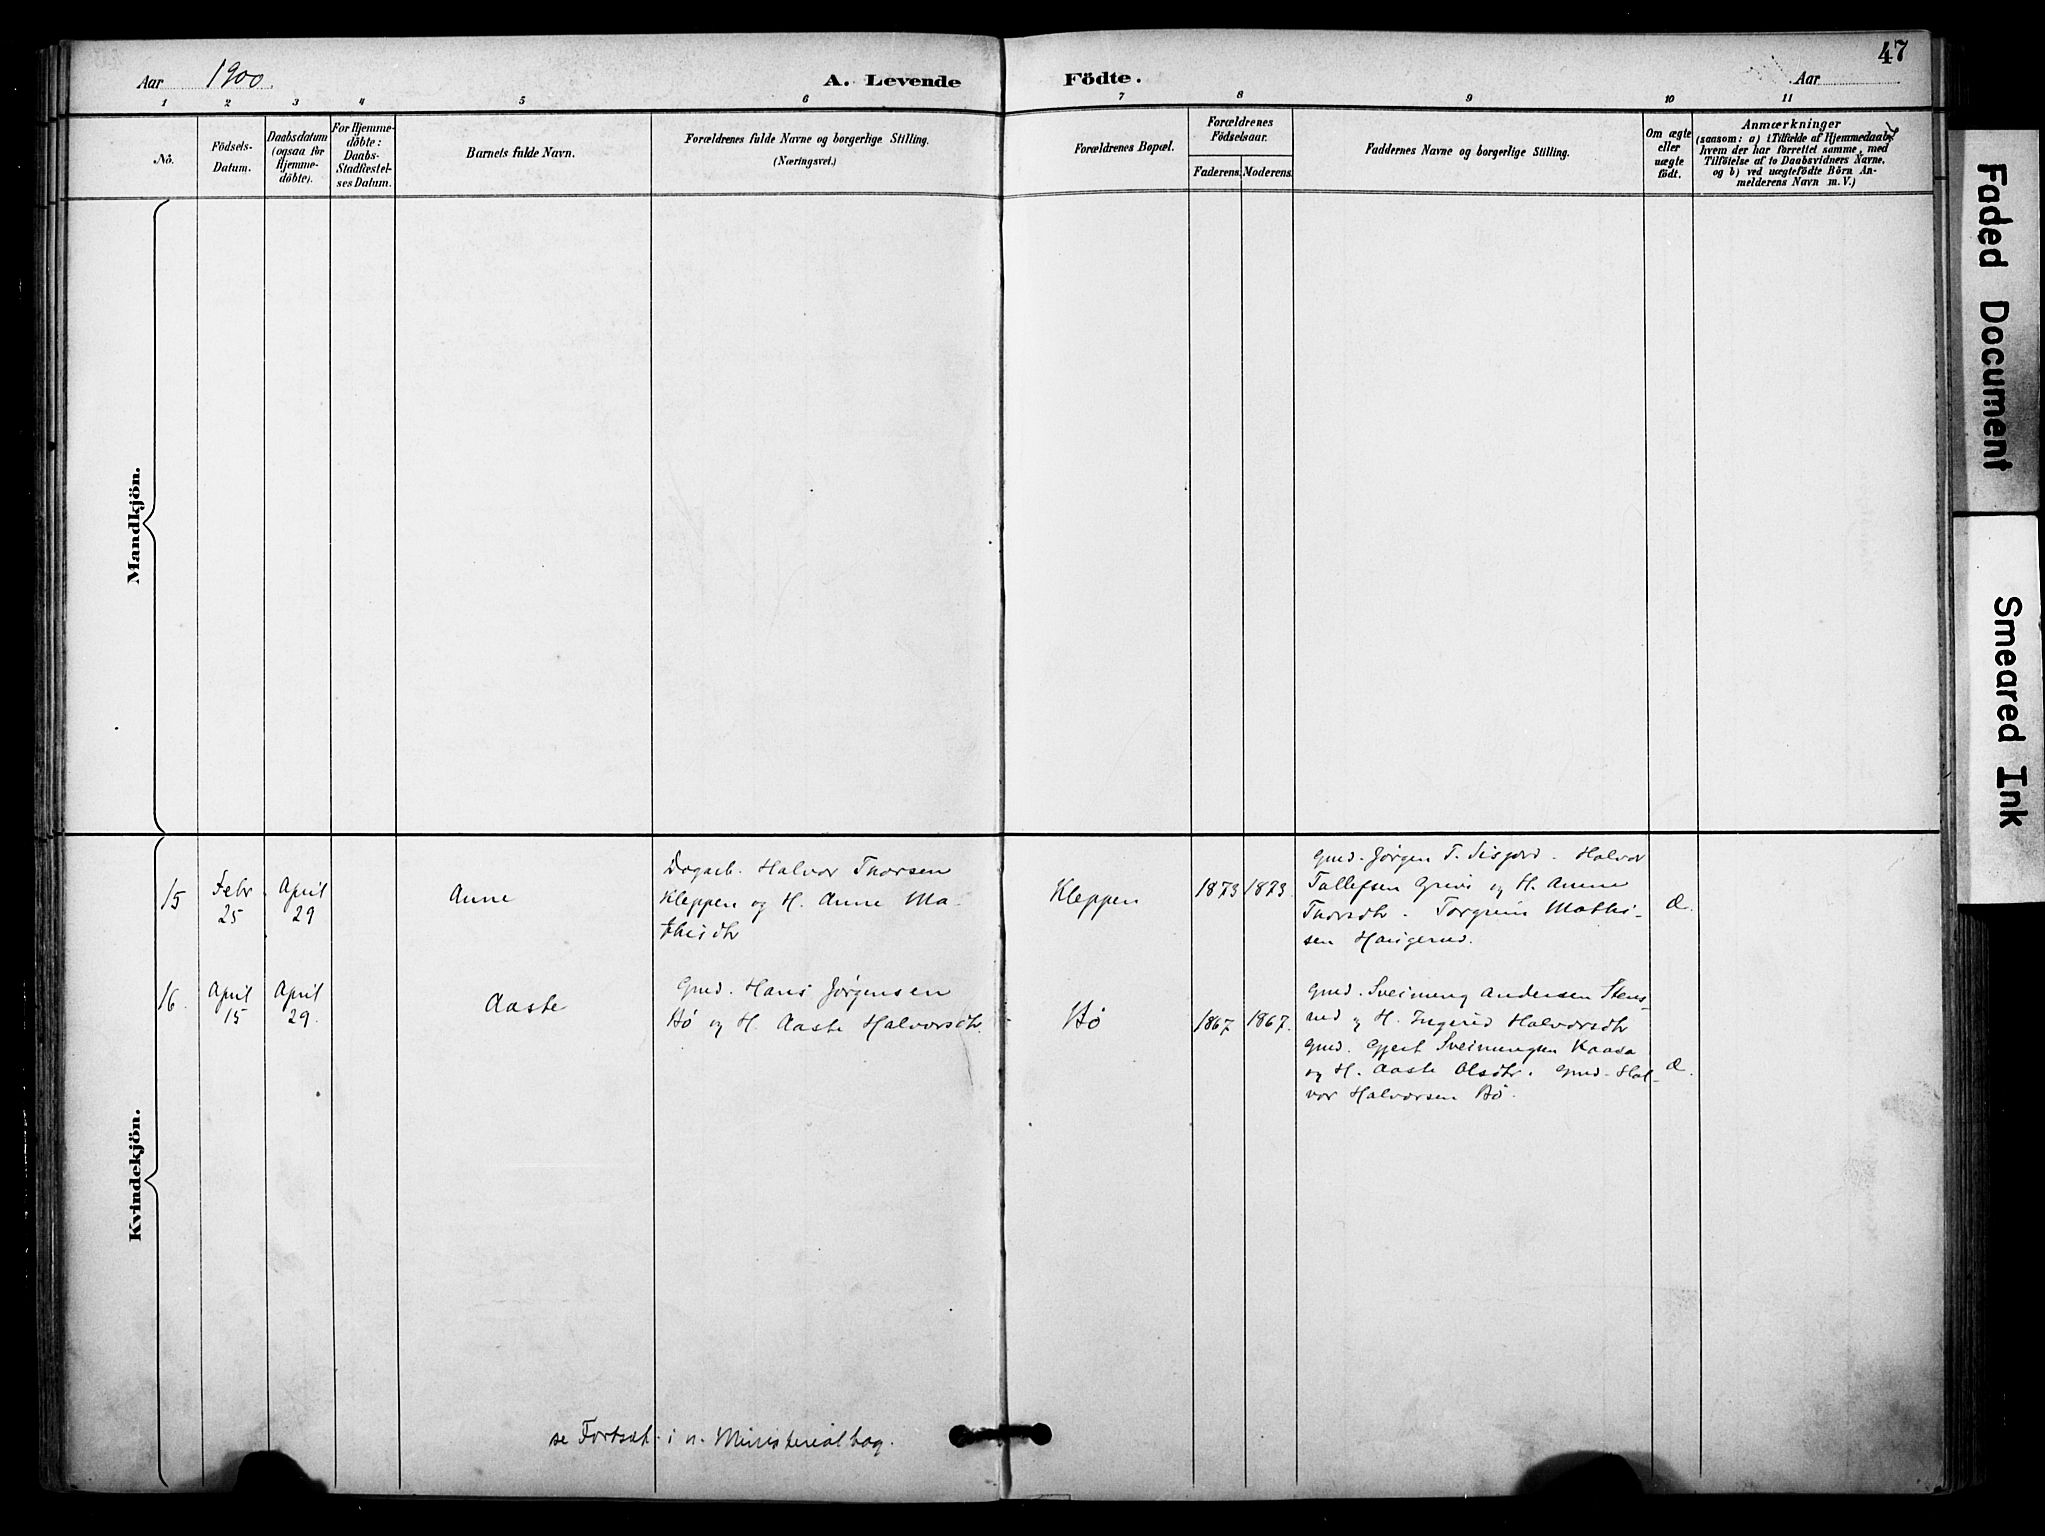 47
Aar 1900.
A. Levende Födte.
Aar
1 2 3 4 5 6 7 8 9 10 11
Nô.
Födsels-
Datum.
Daabsdatum
(ogsaa for
Hjemme-
döbte).
For Hjemme-
döbte:
Daabs-
Stadfæstel-
ses Datum.
Barnets fulde Navn.
Forældrenes fulde Navne og borgerlige Stilling.
(Næringsvei.)
Forældrenes Bopæl.
Forældrenes
Födselsaar.
Faderens. Moderens.
Faddernes Navne og borgerlige Stilling.
Om ægte
eller
uægte
födt.
Anmærkninger
(saasom: a) i Tilfælde af Hjemmedaab,
hvem der har forrettet samme, med
Tilföielse af to Daabsvidners Navne,
og b) ved uægtefödte Börn An-
melderens Navn m. V.)
Mandkjön.
Kvindekjön.
15
Febr
25
April
29
Anne
Dagarb. Halvor Thorsen
Kleppen og H. Anne Ma-
thisdtr
Kleppen
1873 1873.
Gmd. Jørgen T. Halvor
Tallefsen og H. Anne
Thorsdtr. Torgrim Mathi-
sen Haugerud.
Æ.
16.
April
15
April
29.
Aaste
Gmd. Hans Jørgensen
Bø og H. Aaste Halvorsdtr.
Bø
1867 1867.
Gmd. Sveinung Andersen Stens-
rud og H. Ingerid Halvorsdtr
Gmd. Gjert Sveinungsen Kaasa
og H. Aaste Olsdtr. Gmd. Hal-
vor Halvorsen Bø.
Æ.
se Fortsæt. i n. Ministerialbog.
Faded Document
Smeared Ink